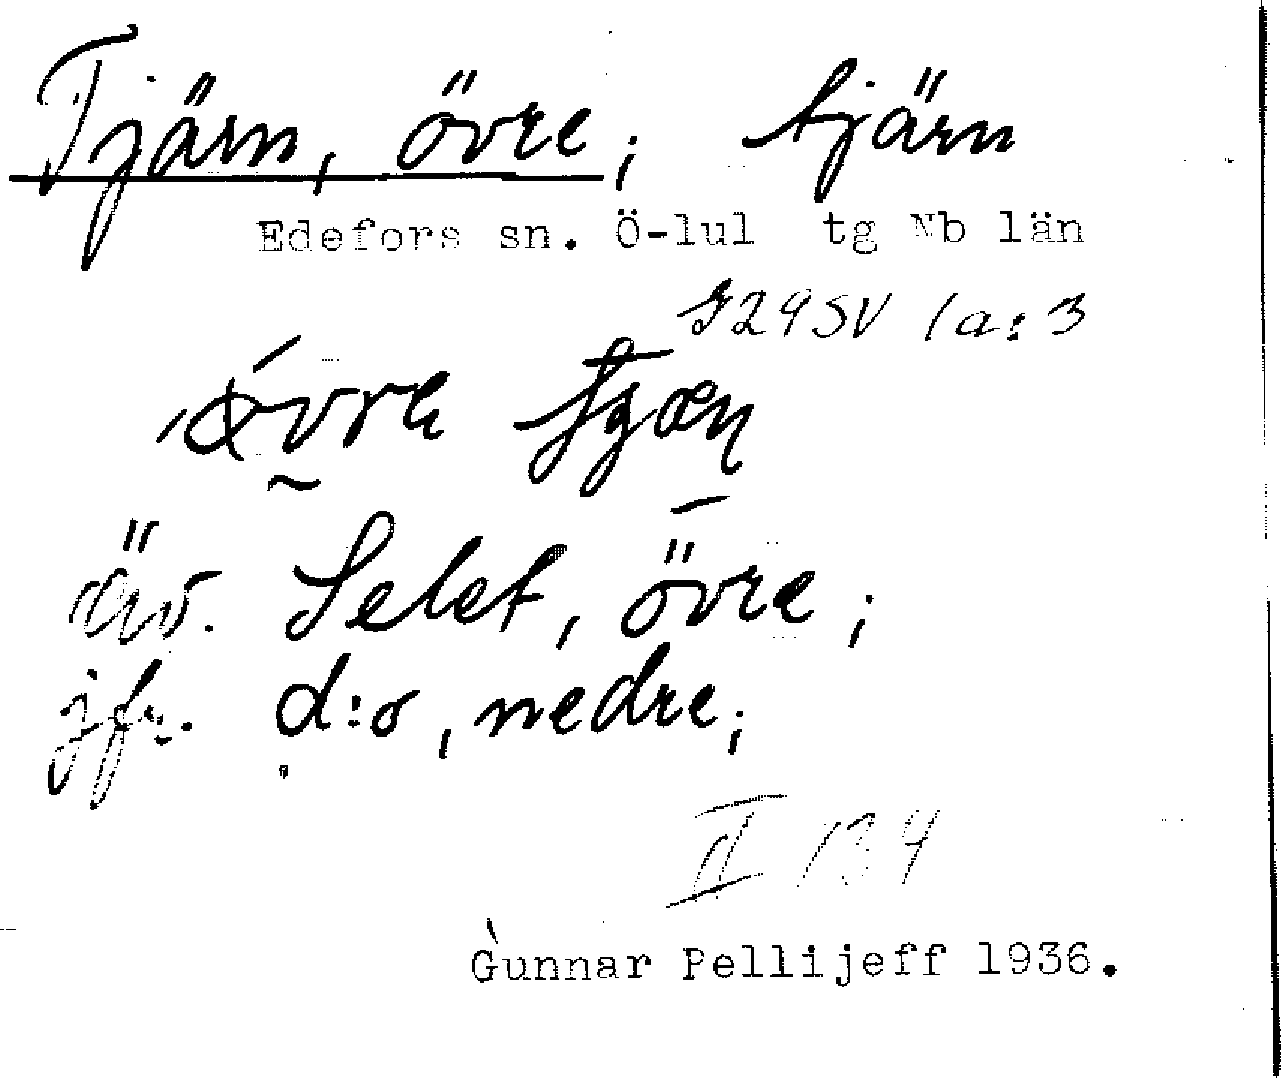 Tjärn, övre; tjärn
Edefors sn. Ö-lul tg Nb län
729SV 1a:3
äv. Selet, övre;
jfr. d:o, nedre;
II 134
Gunnar Pellijeff 1936.